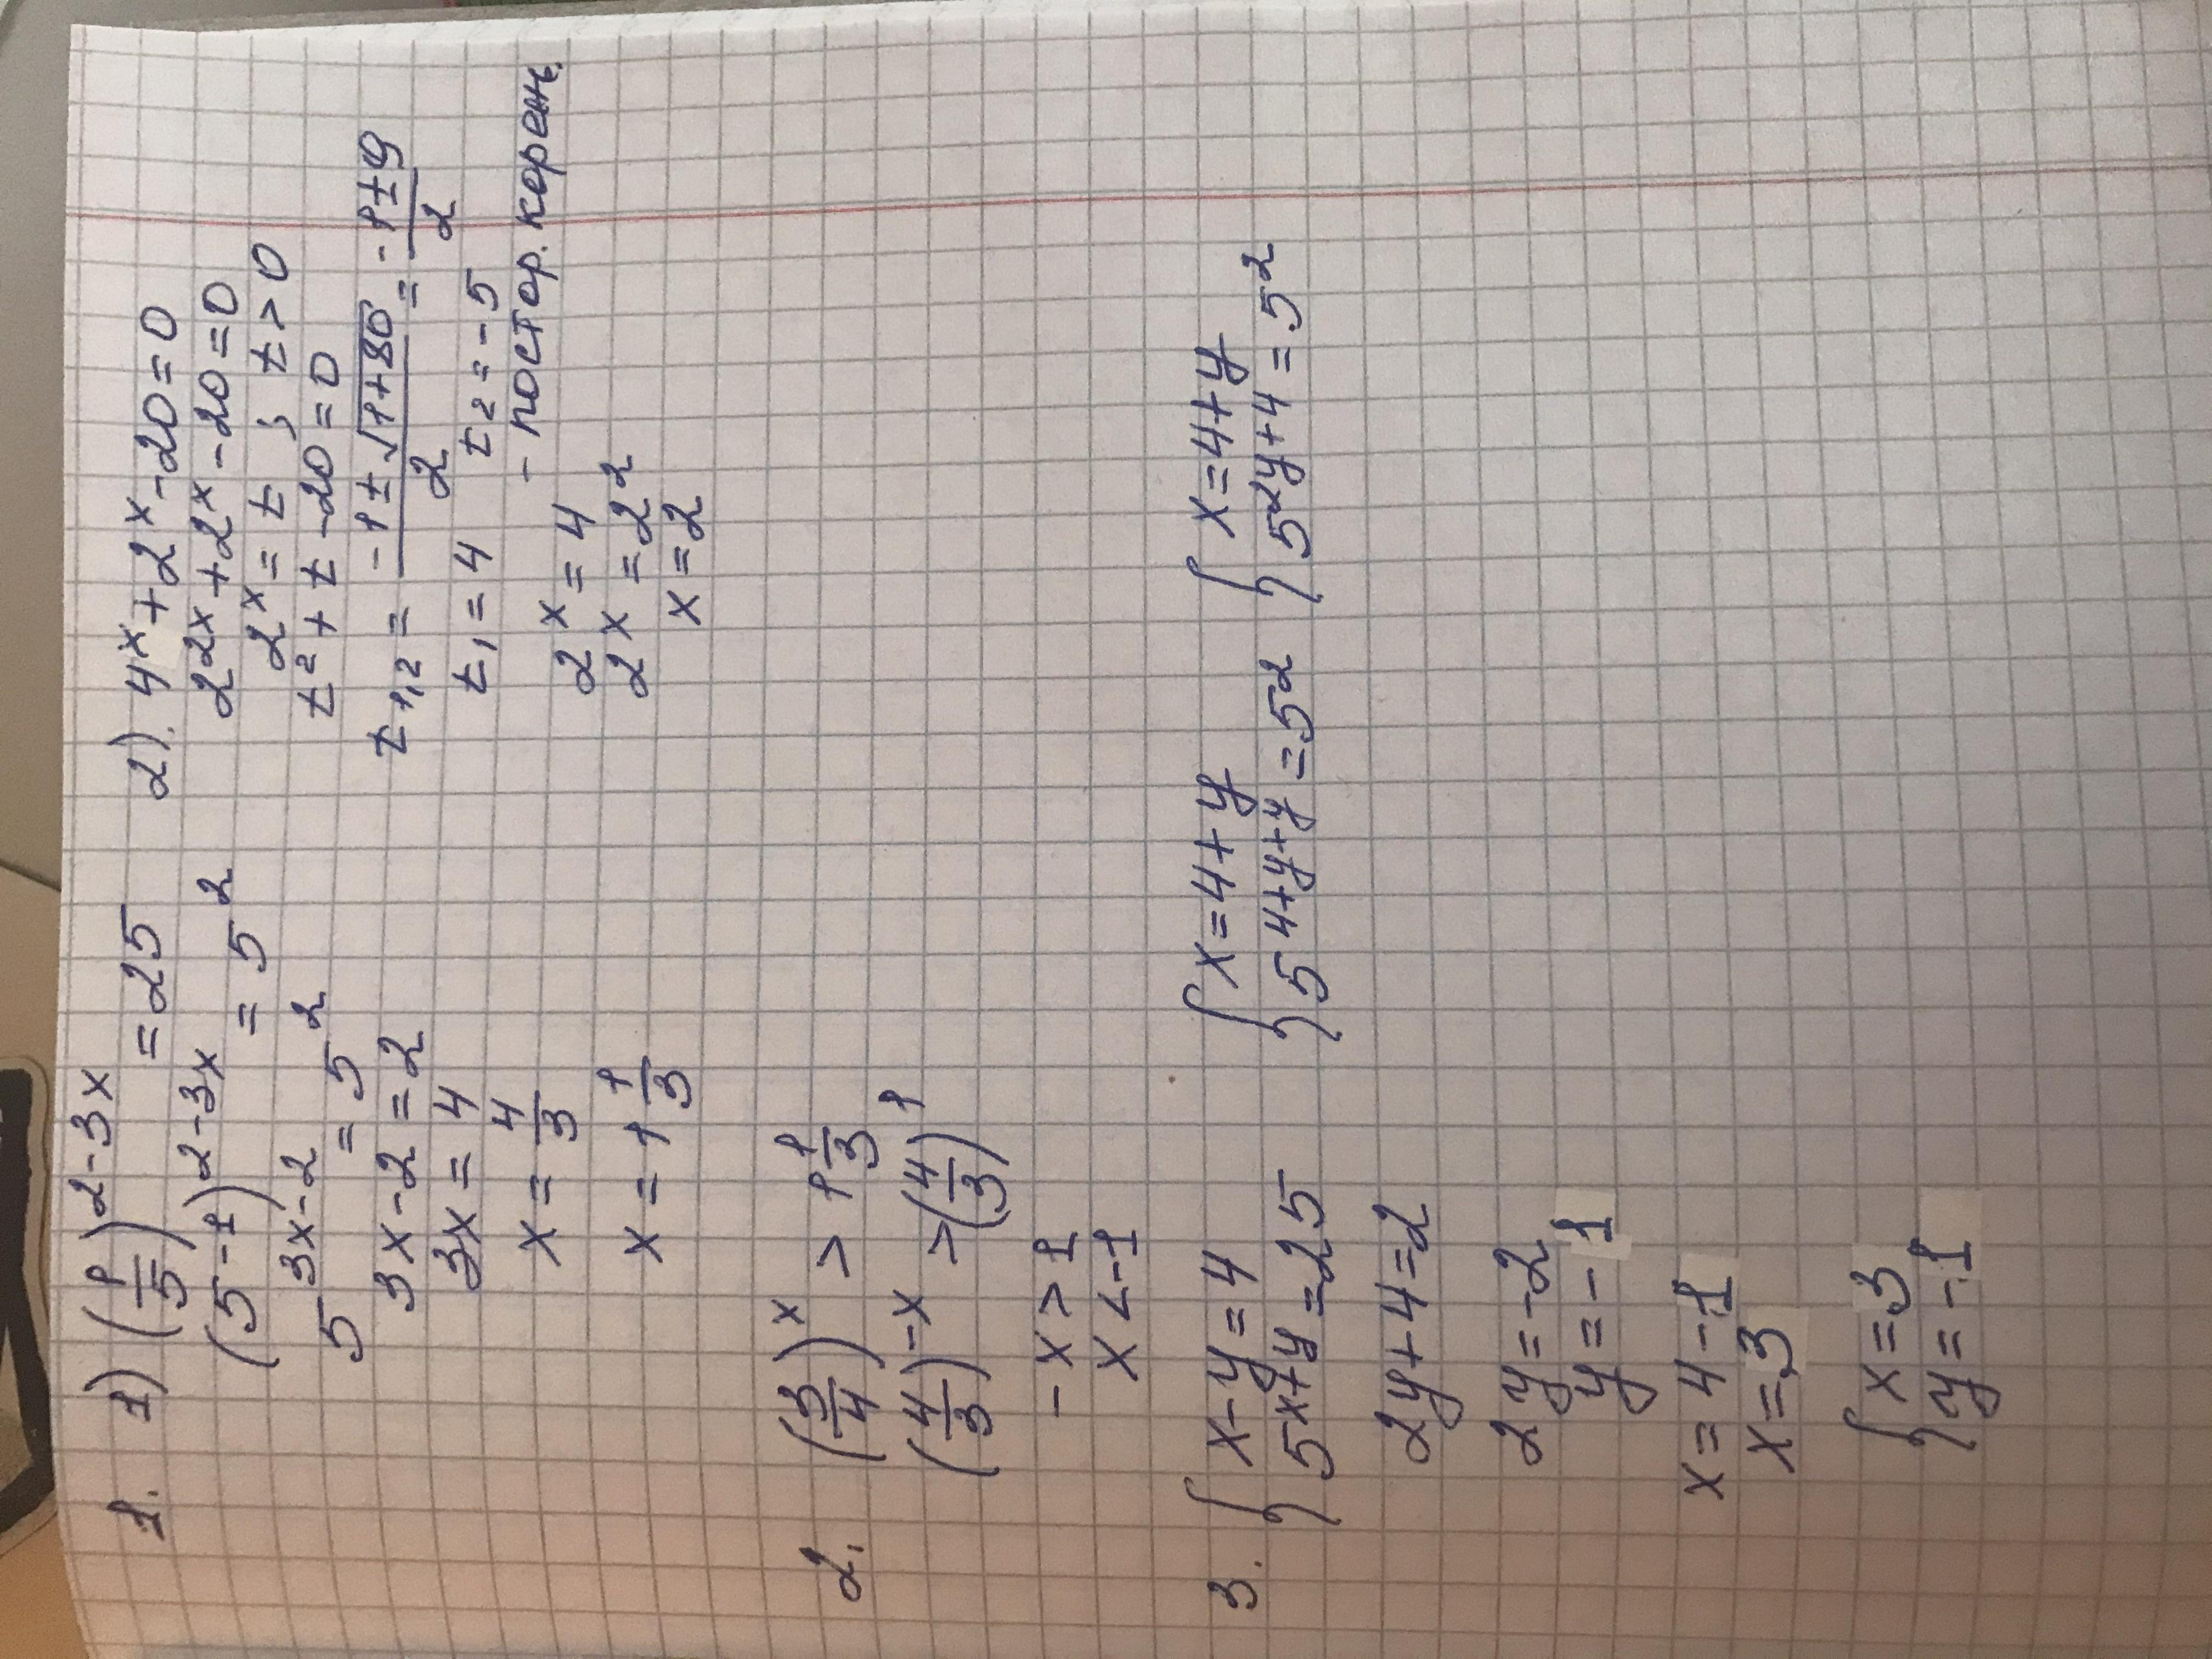 1. 1) (1/5)^(2-3x) = 25
(5^(-1))^(2-3x) = 5^2
5^(3x-2) = 5^2
3x-2=2
3x=4
x = 4/3
x = 1 1/3
2). 4^x+2^x-20=0
2^(2x)+2^x-20=0
2^x = t ; t>0
t²+t-20=0
t₁,₂ = (-1±√(1+80))/2 = (-1±9)/2
t₁=4 t₂=-5
- постор. корень.
2^x = 4
2^x = 2^2
x=2
2. (3/4)^x > 1 1/3
(4/3)^(-x) > (4/3)^1
-x>1
x<-1
3. { x-y=4 { x=4+y { x=4+y
5^(x+y)=25 5^(4+y+y)=5^2 5^(2y+4)=5^2
2y+4=2
2y=-2
y=-1
x=4-1
x=3
{ x=3
y=-1